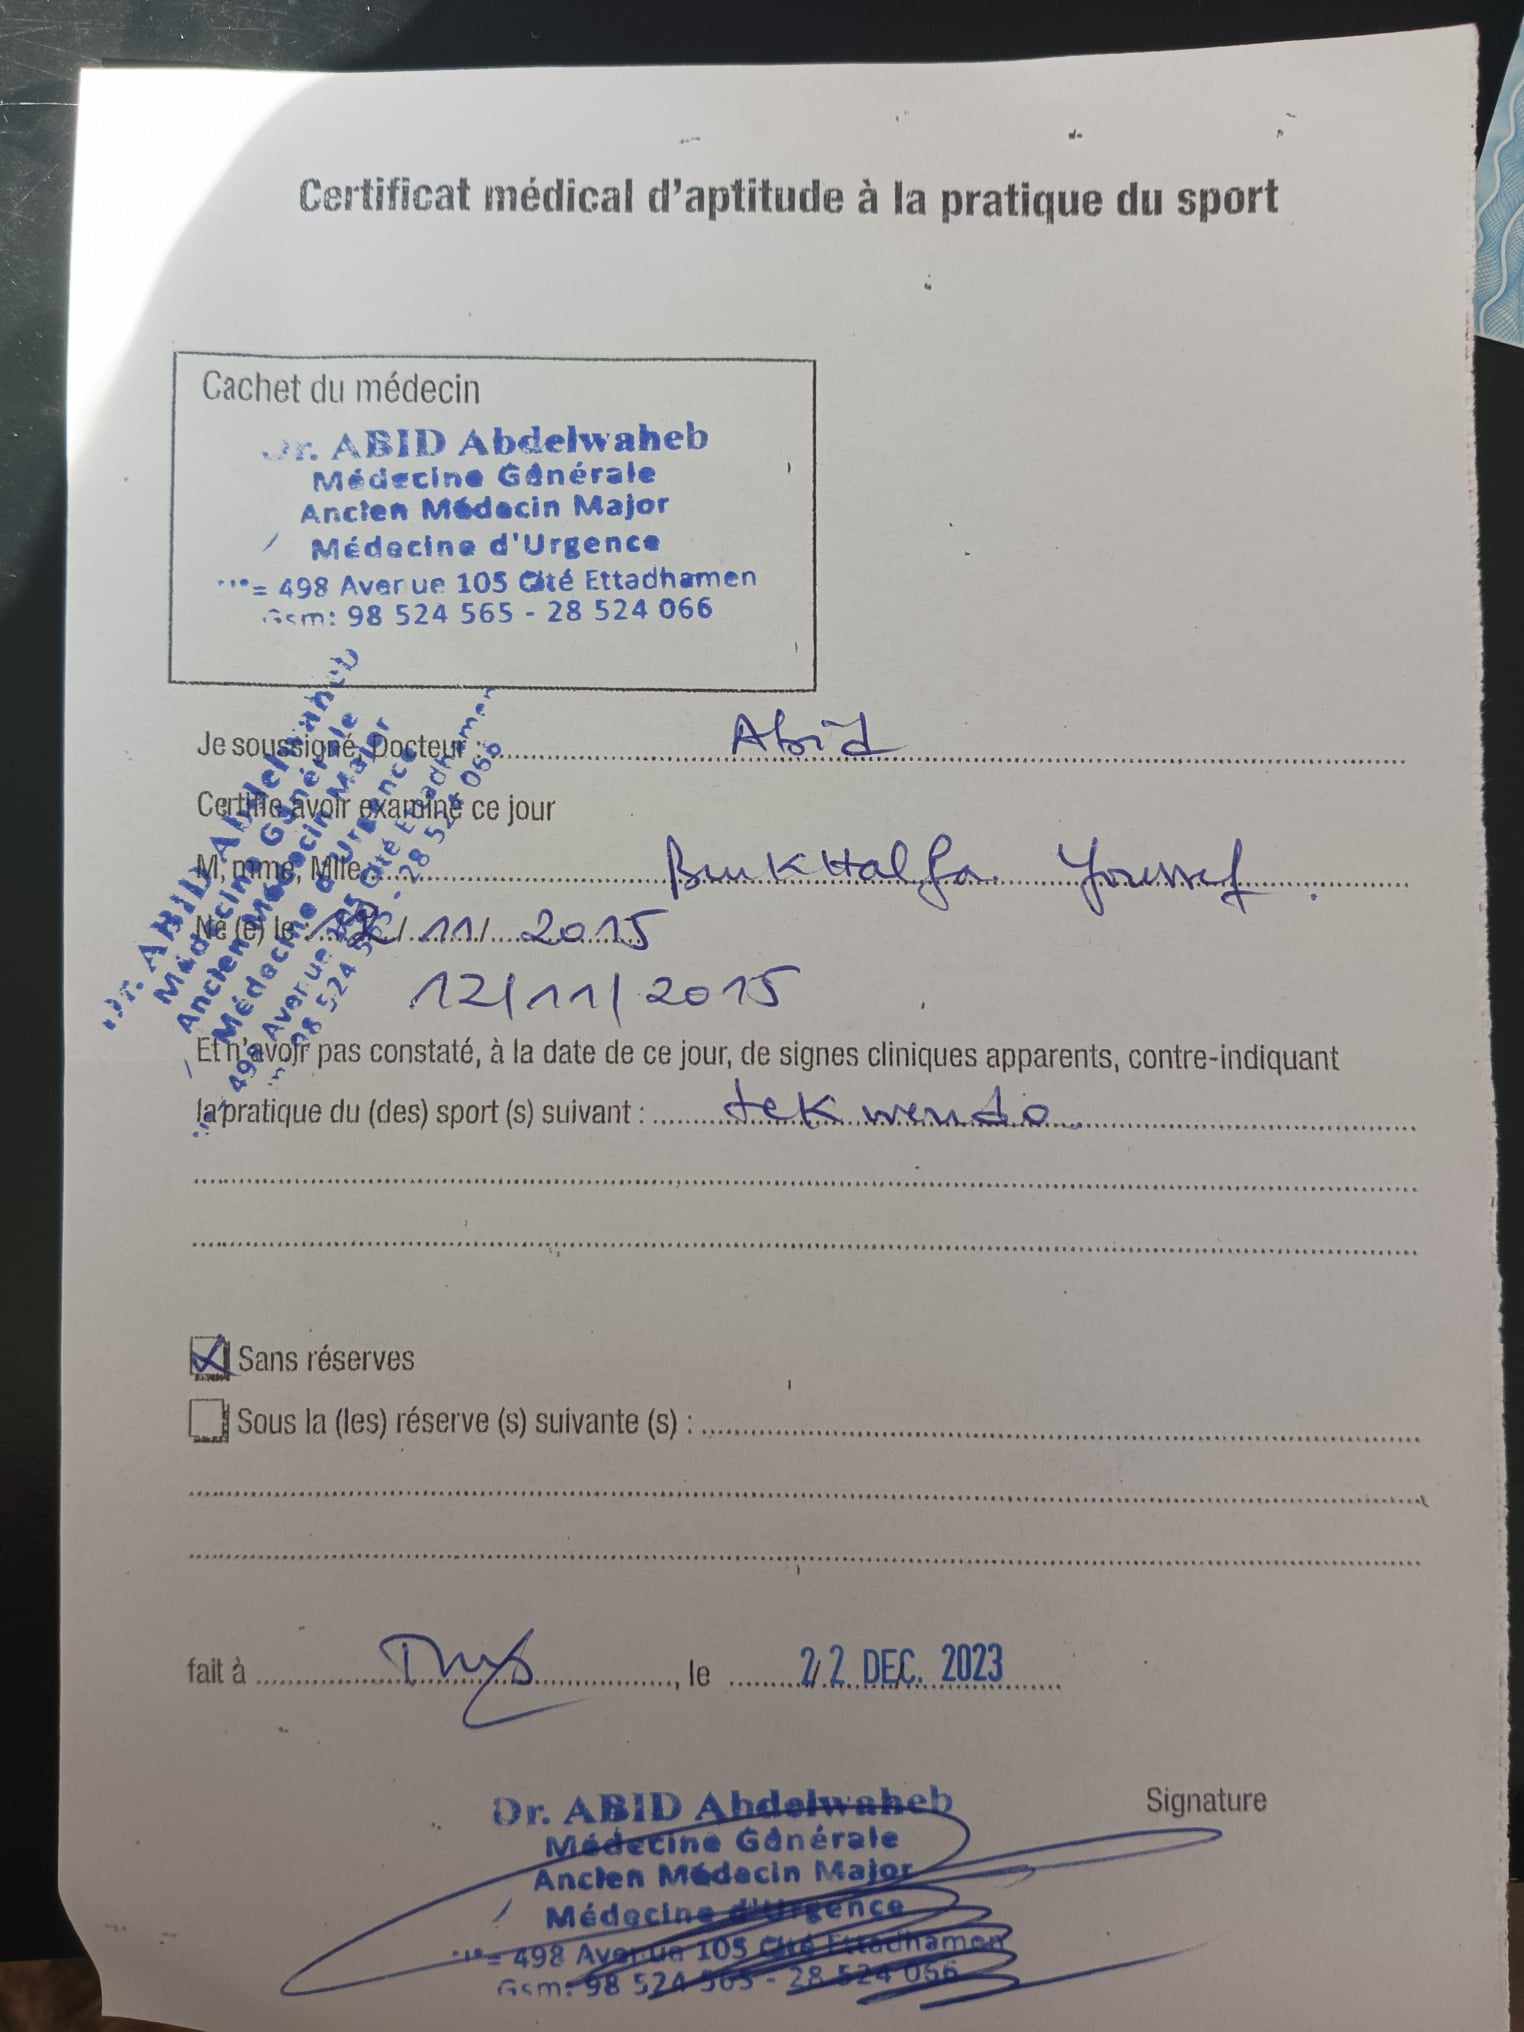 Certificat médical d'aptitude à la pratique du sport
Cachet du médecin
Dr. ABID Abdelwaheb
Médecine Générale
Ancien Médecin Major
Médecine d'Urgence
498 Avenue 105 Cité Ettadhamen
Gsm: 98 524 565 - 28 524 066
Je soussigné, Docteur : Abid
Certifie avoir examiné ce jour
M, mme, Mlle BenKHalfa Youssef
Né (e) le : 12/11/2015
12/11/2015
Et n'avoir pas constaté, à la date de ce jour, de signes cliniques apparents, contre-indiquant
la pratique du (des) sport (s) suivant : tekwendo
Dr. ABID Abdelwaheb
Médecine Générale
Ancien Médecin Major
Médecine d'Urgence
498 Avenue 105 Cité Ettadhamen
98 524 565 - 28 524 066
Sans réserves
Sous la (les) réserve (s) suivante (s) :
fait à , le 22 DEC. 2023
Signature
Dr. ABID Abdelwaheb
Médecine Générale
Ancien Médecin Major
Médecine d'Urgence
498 Avenue 105 Cité Ettadhamen
Gsm: 98 524 565 - 28 524 066